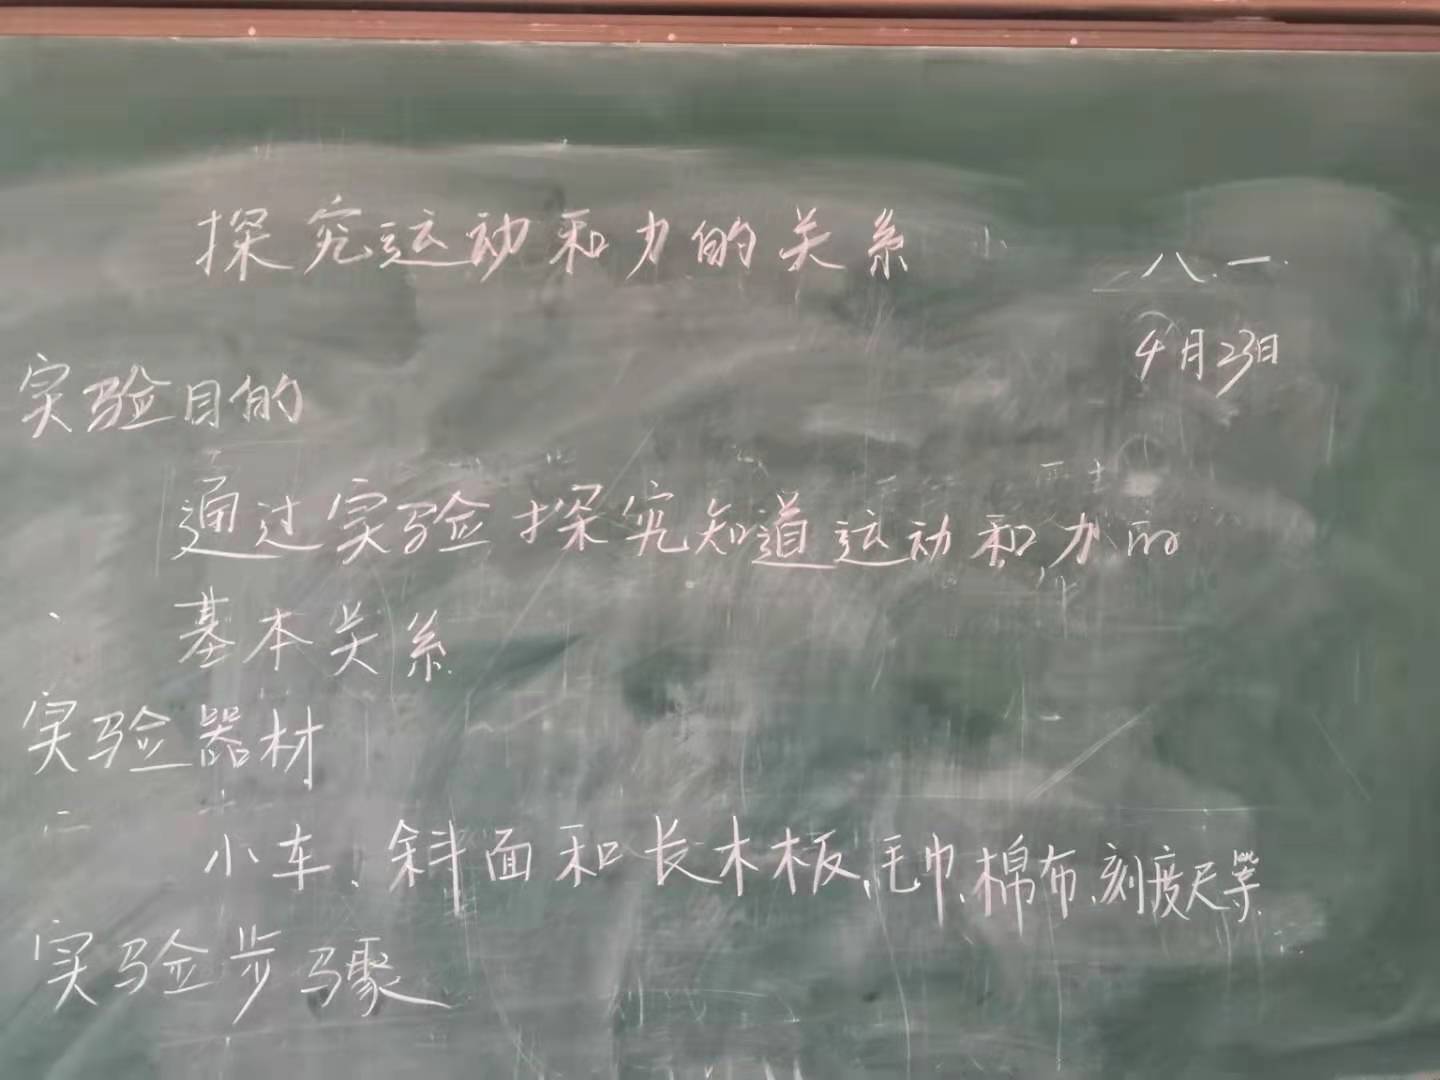 探究运动和力的关系
八.一.
4月23日
实验目的
通过实验探究知道运动和力的
基本关系
实验器材
小车、斜面和长木板、毛巾、棉布、刻度尺等.
实验步骤